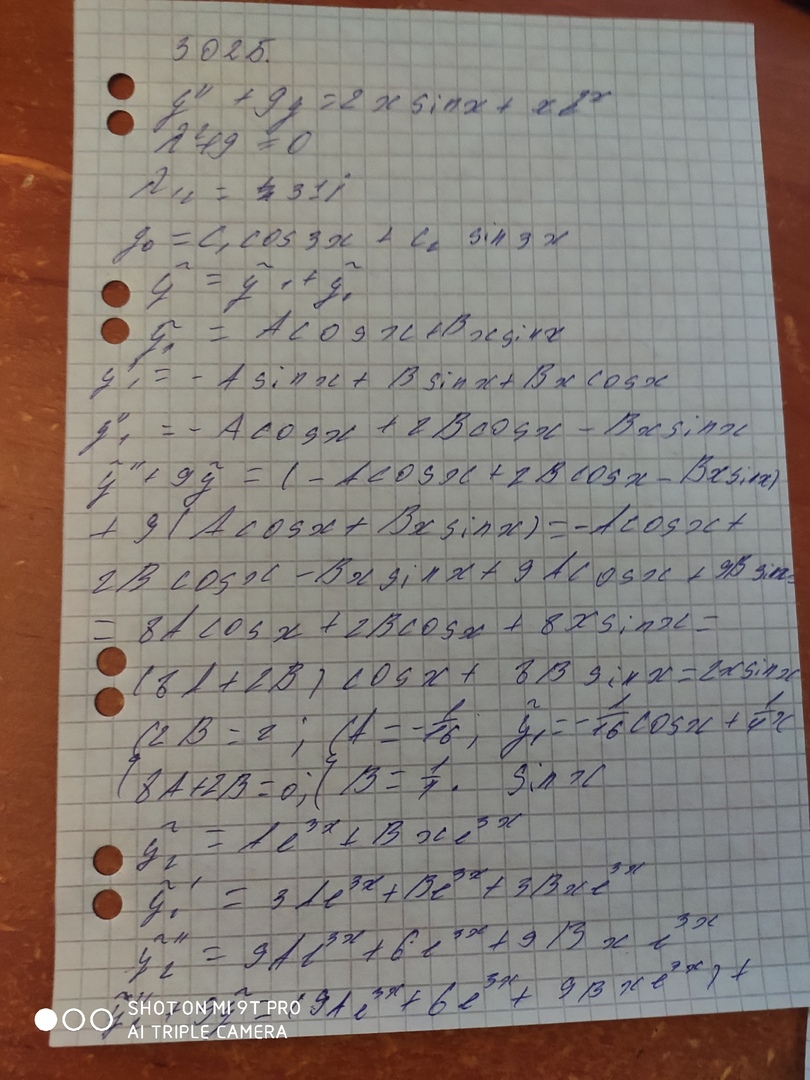 3025.
y'' + 9y = 2x sin x + x e^x
λ² + 9 = 0
λ₁₂ = ± 3i
y₀ = C₁ cos 3x + C₂ sin 3x
ỹ = ỹ₁ + ỹ₂
ỹ₁ = A cos x + Bx sin x
y'₁ = - A sin x + B sin x + Bx cos x
y''₁ = - A cos x + 2B cos x - Bx sin x
ỹ'' + 9ỹ = (- A cos x + 2B cos x - Bx sin x)
+ 9(A cos x + Bx sin x) = - A cos x +
2B cos x - Bx sin x + 9A cos x + 9B sin =
= 8A cos x + 2B cos x + 8x sin x =
(8A + 2B) cos x + 8B sin x = 2x sin x
{2B = 2; {A = - 1/16; ỹ₁ = - 1/16 cos x + 1/4 x
{8A + 2B = 0; { B = 1/4. sin x
ỹ₂ = A e^3x + B x e^3x
ỹ₂' = 3A e^3x + B e^3x + 3Bx e^3x
ỹ₂'' = 9A e^3x + 6 e^3x + 9 B x e^3x
ỹ'' + 9ỹ = (9A e^3x + 6 e^3x + 9B x e^3x) +
SHOT ON MI 9T PRO
AI TRIPLE CAMERA